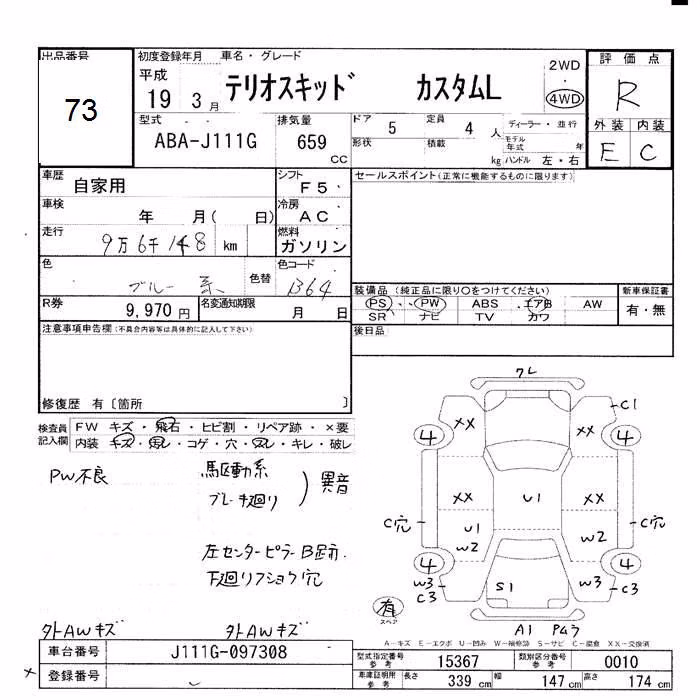 出品番号 初度登録年月 車名・グレード 評価点
73
平成 19 3月 テリオスキッド カスタムL 2WD ・ 4WD R
型式 ABA-J111G 排気量 659 CC ドア 5 定員 4 人 ディーラー・並行 外装 内装
形状 積載 kg モデル年式 年 ハンドル 左・右 E C
車歴 自家用 シフト F5 セールスポイント(正常に機能するものに限ります)
車検 年 月( 日) 冷房 AC
走行 9万6千148 km 燃料 ガソリン
色 ブルー 系 色替 色コード B64
装備品 (純正品に限り○をつけてください) 新車保証書
R券 9,970円 名変通知期限 月 日 PS PW ABS エアB AW 有・無
SR ナビ TV カワ
注意事項申告欄(不具合内容等は具体的に記入して下さい) 後日品
修復歴 有〔箇所 〕
検査員記入欄 FW キズ・飛石・ヒビ割・リペア跡・×要
内装 キズ・汚レ・コゲ・穴・スレ・キレ・破レ
PW不良 駆動系 異音
ブレーキ廻り
左センターピラーB跡
下廻りフショウ穴
外AWキズ 外AWキズ
ワレ
XX XX C1
4 4
XX U1 XX
C穴 U1 W2 C穴
W2
4 4
W3 S1 W3
C3 C3
有 スペア
A1
A-キズ E-エクボ U-凹み W-補修跡 S-サビ C-腐食 XX-交換済
車台番号 J111G-097308 型式指定番号 参考 15367 類別区分番号 参考 0010
× 登録番号 車庫証明用 参考 長さ 339cm 幅 147cm 高さ 174cm